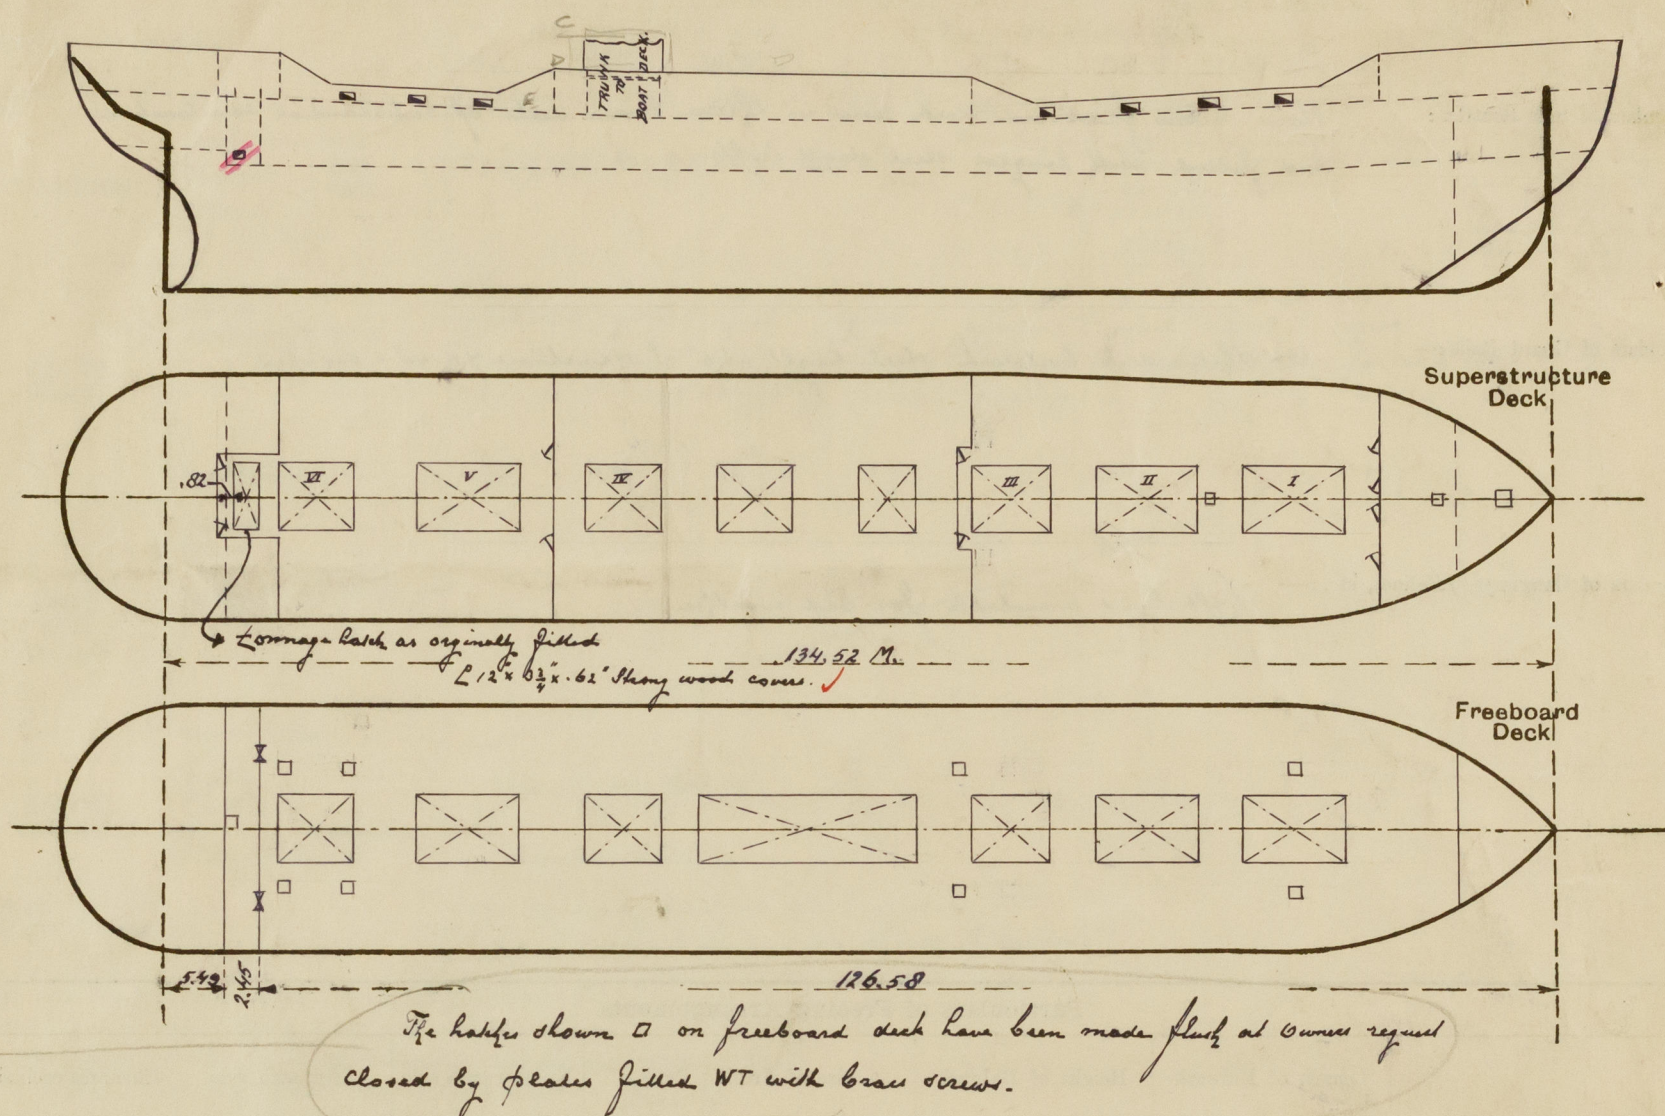 C
TRUNK
TO
BOAT DECK.
Superstructure
Deck
.82
VI
V
IV
III
II
I
tonnage hatch as orginally fitted
134.52 M.
Strong wood covers.
Freeboard
Deck
5.49
2.45
126.58
The hatches shown □ on freeboard deck have been made flush at Owners request
closed by plates fitted WT with brass screws.